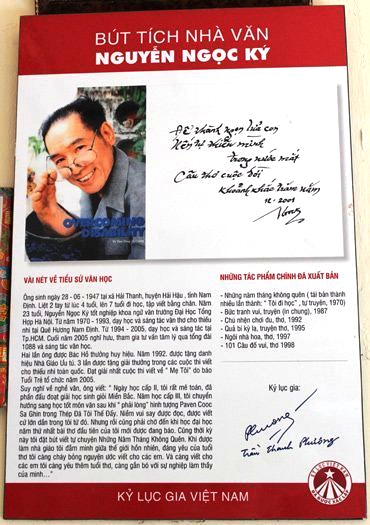 BÚT TÍCH NHÀ VĂN
NGUYỄN NGỌC KÝ
OVERCOMING
DISABILITY
Để thành ngọn lửa con
Nến tự thiêu mình
Trong nước mắt
Câu thơ cuộc đời
Khoảnh khắc trăm năm
12-2001
VÀI NÉT VỀ TIỂU SỬ VĂN HỌC
Ông sinh ngày 28 - 06 - 1947 tại xã Hải Thanh, huyện Hải Hậu , tỉnh Nam
Định. Liệt 2 tay từ lúc 4 tuổi, lên 7 tuổi đi học, tập viết bằng chân. Năm
23 tuổi, Nguyễn Ngọc Ký tốt nghiệp khoa ngữ văn trường Đại Học Tổng
Hợp Hà Nội. Từ năm 1970 - 1993, dạy học và sáng tác văn thơ cho thiếu
nhi tại Quê Hương Nam Định. Từ 1994 - 2005, dạy học và sáng tác tại
Tp.HCM. Cuối năm 2005 nghỉ hưu, tham gia tư vấn tâm lý qua tổng đài
1088 và sáng tác văn học.
Hai lần ông được Bác Hồ thưởng huy hiệu. Năm 1992. được tặng danh
hiệu Nhà Giáo Ưu tú. 3 lần được tặng giải thưởng trong các cuộc thi viết
cho thiếu nhi toàn quốc. Đạt giải nhất cuộc thi viết về " Mẹ Tôi" do báo
Tuổi Trẻ tổ chức năm 2005.
Suy nghĩ về nghề văn, ông viết: " Ngày học cấp II, tôi rất mê toán, đã
phấn đấu đoạt giải học sinh giỏi Miền Bắc. Năm học cấp III, tôi chuyển
hướng sang học tốt môn văn sau khi " phải lòng" hình tượng Paven Cooc
Sa Ghin trong Thép Đã Tôi Thế Đấy. Niềm vui say được đọc, được viết
cứ lớn dần trong tôi từ đó. Nhưng rồi cũng phải chờ đến khi học đại học
năm thứ nhất bài thơ đầu tiên của tôi mới được đăng báo. Cũng thời kỳ
này tôi đặt bút viết tự chuyện Những Năm Tháng Không Quên. Khi được
làm nhà giáo tôi đắm mình giữa thế giới hồn nhiên, đáng yêu của tuổi
thơ tôi càng cháy bỏng nguyện ước viết cho các em. Và càng viết cho
các em tôi càng yêu thêm tuổi thơ, càng gắn bó với sự nghiệp làm thầy
của mình..."
NHỮNG TÁC PHẨM CHÍNH ĐÃ XUẤT BẢN
- Những năm tháng không quên ( tái bản thành
nhiều lần thành: " Tôi đi học" , tự truyện, 1970)
- Bức tranh vui, truyện (in chung), 1987
- Chú nhện chơi đu, thơ, 1992
- Quả bí kỳ lạ, truyện thơ, 1995
- Ngôi nhà hoa, thơ, 1997
- 101 Câu đố vui, thơ 1998
Kỷ lục gia:
Phương
Trần Thanh Phương
KỶ LỤC GIA VIỆT NAM